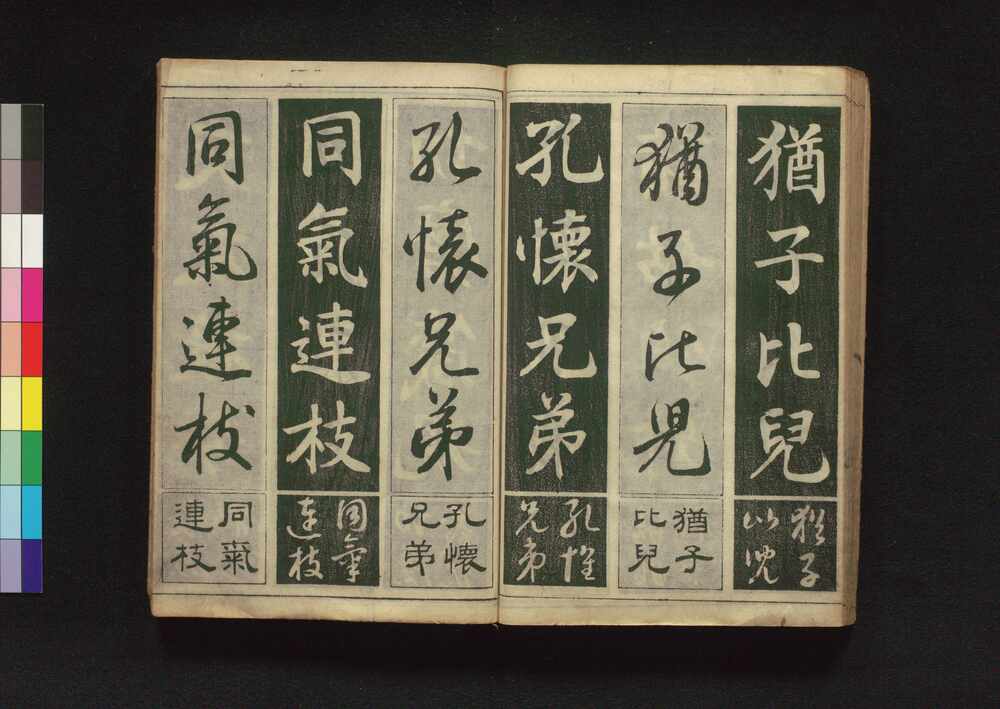 猶子比兒
猶子
比兒
猶子比児
猶子
比兒
孔懷兄弟
孔懷
兄弟
孔懐兄弟
孔懷
兄弟
同氣連枝
同氣
連枝
同氣連枝
同氣
連枝